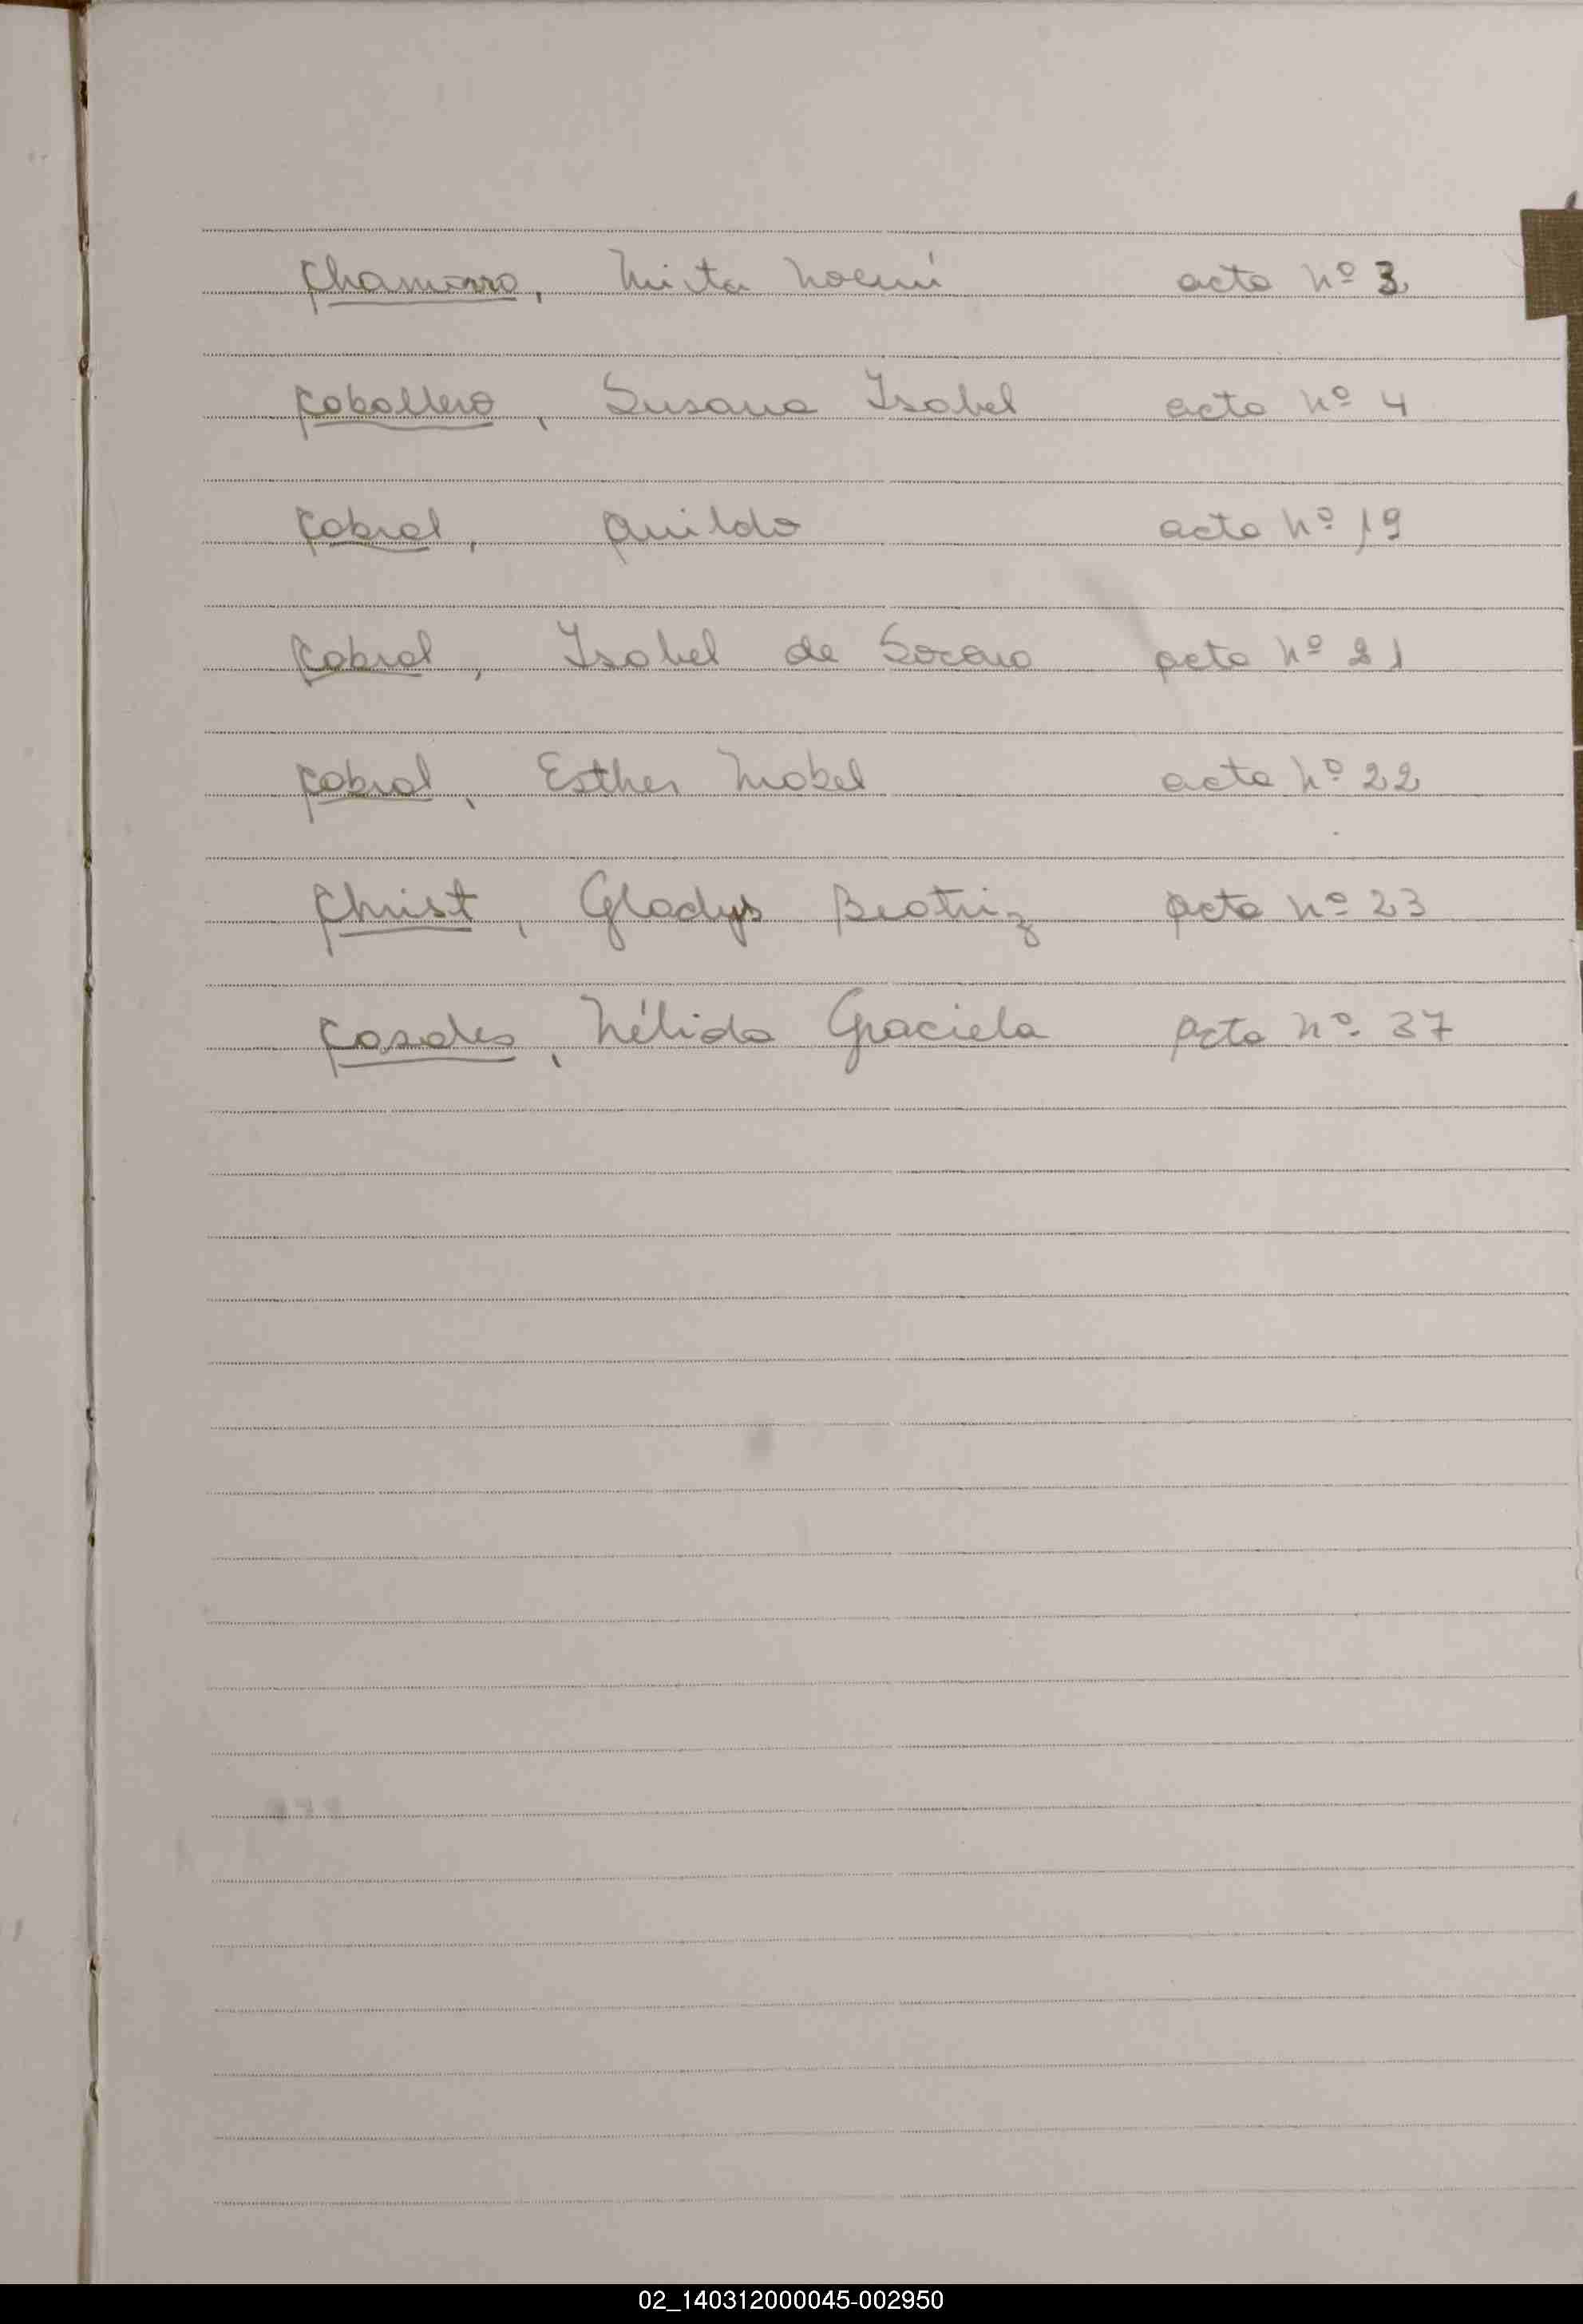 Chamorro, Mirta Noemí acta Nº 3
Caballero, Susana Isabel acta Nº 4
Cabral, acta Nº 19
Cabral, Isabel de acta Nº 21
Cabral, Esther Mabel acta Nº 22
Christ, Gladys Beatriz acta Nº 23
Casales, Nélida Graciela acta Nº 37
02_140312000045-002950